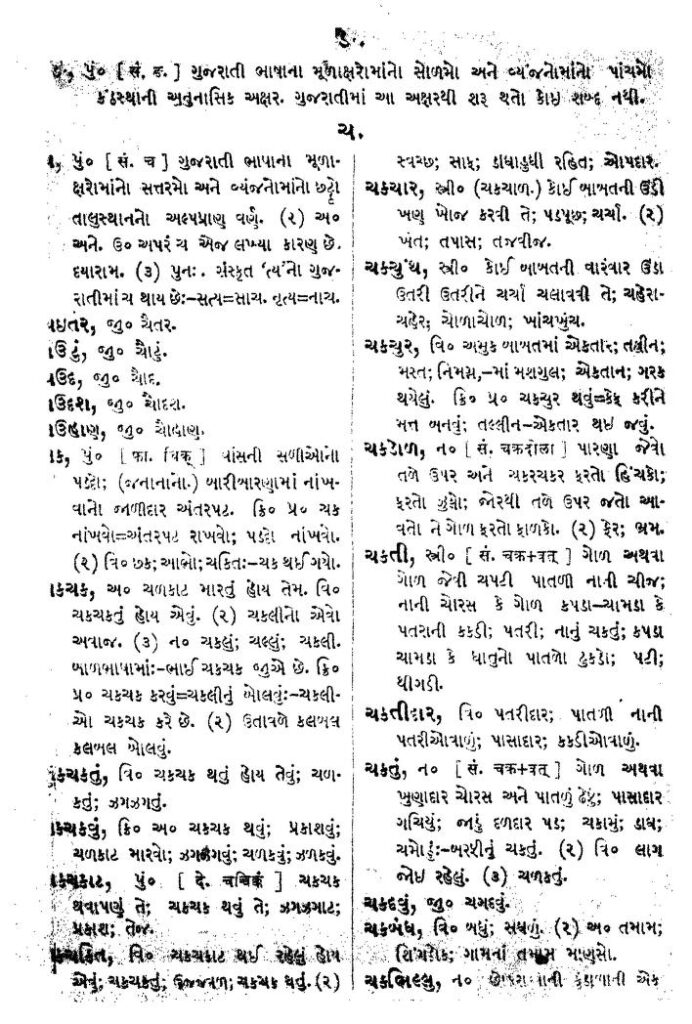 ઙ.
ઙ, પું૦ [ સં. ङ. ] ગુજરાતી ભાષાના મૂળાક્ષરોમાંનો સોળમો અને વ્યંજનોમાંનો પાંચમો
કંઠસ્થાની અનુનાસિક અક્ષર. ગુજરાતીમાં આ અક્ષરથી શરૂ થતો કોઇ શબ્દ નથી.
ચ.
પું૦ [ સં. च ] ગુજરાતી ભાષાના મૂળા-
ક્ષરોમાંનો સત્તરમો અને વ્યંજનોમાંનો છઠ્ઠો
તાલુસ્થાનનો અલ્પપ્રાણ વર્ણ. (૨) અ૦
અને. ઉ૦ અપરં ચ એજ લખ્યા કારણ છે.
દયારામ. (૩) પુનઃ. સંસ્કૃત ‘ત્ય’નો ગુજ-
રાતીમાં ચ થાય છેઃ–સત્ય=સાચ. નૃત્ય=નાચ.
ઇતર, જુ૦ ચૈતર.
ઉટું, જુ૦ ચૌટું.
ઉદ, જુ૦ ચૌદ.
ઉદશ, જુ૦ ચૌદશ.
ઉહાણ, જુ૦ ચૌહાણ.
ક, પું૦ [ फा. चिक् ] વાંસની સળીઓનો
પડદો; (જનાનાનો.) બારીબારણામાં નાંખ-
વાનો જાળીદાર અંતરપટ. ક્રિ૦ પ્ર૦ ચક
નાંખવો=અંતરપટ રાખવો; પડદો નાંખવો.
(૨) વિ૦ છક; આભો; ચકિતઃ–ચક થઈ ગયો.
કચક, અ૦ ચળકાટ મારતું હોય તેમ. વિ૦
ચકચકતું હોય એવું. (૨) ચકલીનો એવો
અવાજ. (૩) ન૦ ચકલું; ચલ્લું; ચકલી.
બાળભાષામાંઃ–ભાઈ ચકચક જુએ છે. ક્રિ૦
પ્ર૦ ચકચક કરવું=ચકલીનું બોલવુંઃ–ચકલી-
ઓ ચકચક કરે છે. (૨) ઉતાવળે કલબલ
કલબલ બોલવું.
કચકતું, વિ૦ ચકચક થતું હોય તેવું; ચળ-
કતું; ઝગઝગતું.
કચકવું, ક્રિ૦ અ૦ ચકચક થવું; પ્રકાશવું;
ચળકાટ મારવો; ઝગઝગવું; ચળકવું; ઝળકવું.
કચકાટ, પું૦ [ दे. चक्चिकं ] ચકચક
થવાપણું તે; ચકચક થવું તે; ઝગઝગાટ;
પ્રકાશ; તેજ.
કચકિત, વિ૦ ચકચકાટ થઈ રહેલું હોય
એવું; ચકચકતું; ઉજ્જવળ; ચકચક થતું. (૨)
સ્વચ્છ; સાફ; ડાઘાડુધી રહિત; ઓપદાર.
ચકચાર, સ્ત્રી૦ (ચકચાળ.) કોઈ બાબતની ઉંડી
ખણ ખોજ કરવી તે; પડપૂછ; ચર્ચા. (૨)
ખંત; તપાસ; તજવીજ.
ચકચુંધ, સ્ત્રી૦ કોઈ બાબતની વારંવાર ઉંડા
ઉતરી ઉતરીને ચર્ચા ચલાવવી તે; ચહેરા-
ચહેર; ચોળાચોળ; ખાંચખુંચ.
ચકચુર, વિ૦ અમુક બાબતમાં એકતાર; તલ્લીન;
મસ્ત; નિમગ્ન,–માં મશગુલ; એકતાન; ગરક
થયેલું. ક્રિ૦ પ્ર૦ ચકચુર થવું=કેફ કરીને
મત્ત બનવું; તલ્લીન–એકતાર થઇ જવું.
ચકડોળ, ન૦ [ સં. चक्रदोला ] પારણા જેવો
તળે ઉપર અને ચકરચકર ફરતો હિંચકો;
ફરતો ઝુકો; જોરથી તળે ઉપર જતો આ-
વતો ને ગોળ ફરતો ફાળકો. (૨) ફેર; ભ્રમ.
ચકતી, સ્ત્રી૦ [ સં. चक्र+वत् ] ગોળ અથવા
ગોળ જેવી ચપટી પાતળી નાની ચીજ;
નાની ચોરસ કે ગોળ કપડા–ચામડા કે
પતરાની કકડી; પતરી; નાનું ચકતું; કપડા
ચામડા કે ધાતુનો પાતળો ટુકડો; પટી;
થીગડી.
ચકતીદાર, વિ૦ પતરીદાર; પાતળી નાની
પતરીઓવાળું; પાસાદાર; કકડીઓવાળું.
ચકતું, ન૦ [ સં. चक्र+वत् ] ગોળ અથવા
ખુણાદાર ચોરસ અને પાતળું ઢેફું; પાસાદાર
ગચિયું; જાડું દળદાર પડ; ચકામું; ડાઘ;
ચમોઠુંઃ–બરફીનું ચકતું. (૨) વિ૦ લાગ
જોઇ રહેલું. (૩) ચળકતું.
ચકદવું, જુ૦ ચગદવું.
ચકબંધ, વિ૦ બધું; સઘળું. (૨) અ૦ તમામ;
શિંગડોક; ગામનાં તમામ માણસો.
ચકભિલ્લુ, ન૦ છોકરાનાની કુંડાળાની એક